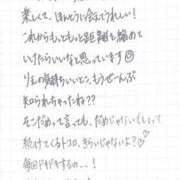 楽しくて、ほんとうに会えてうれしい！
これからもっともっと距離も縮めて
いけたらいいなと思っています☺
りえの気持ちいいとこ、もうぜーんぶ
知られちゃったね??
そこだめって言っても、だめじゃないでしょって
続けてくるトコロ、きらいじゃないよ？♡
毎回ドキドキするの…！